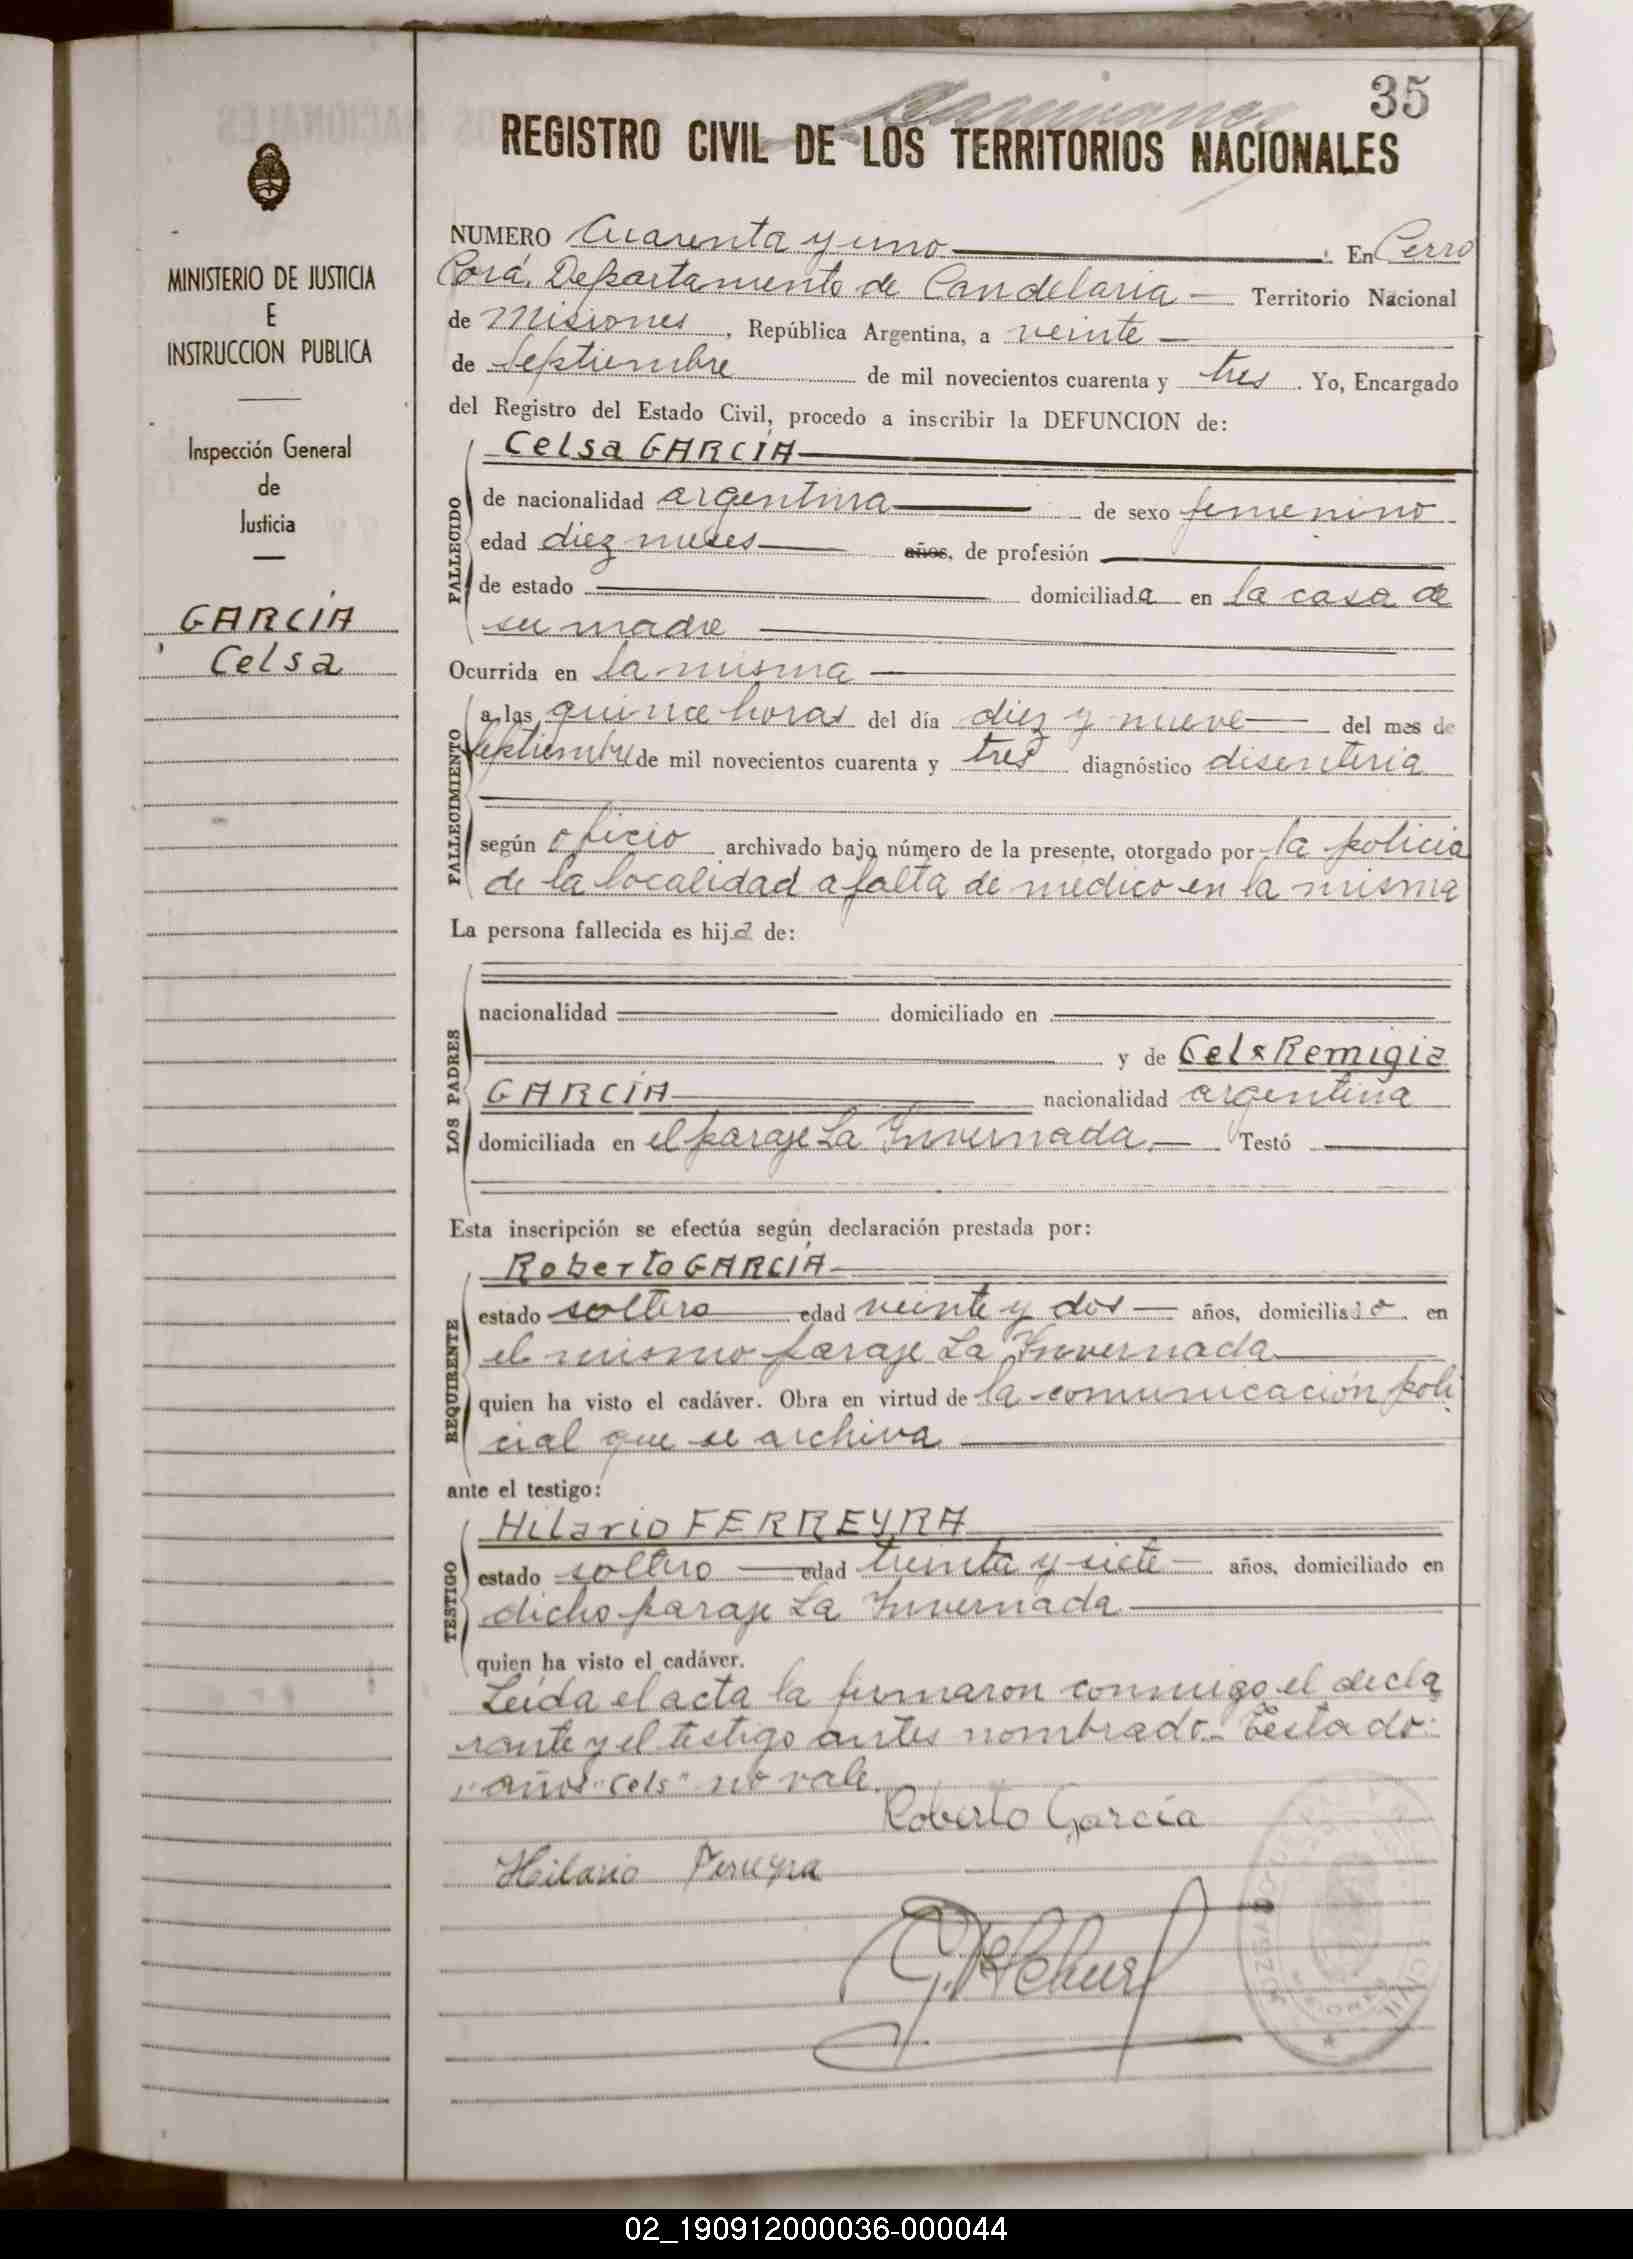 35
REGISTRO CIVIL DE LOS TERRITORIOS NACIONALES
MINISTERIO DE JUSTICIA
E
INSTRUCCION PUBLICA
Inspección General
de
Justicia
GARCÍA
Celsa
NUMERO Cuarenta y uno. En Cerro
Corá, Departamento de Candelaria — Territorio Nacional
de Misiones, República Argentina, a veinte —
de Septiembre de mil novecientos cuarenta y tres. Yo, Encargado
del Registro del Estado Civil, procedo a inscribir la DEFUNCION de:
Celsa GARCÍA
FALLECIDO
de nacionalidad argentina de sexo femenino
edad diez meses años, de profesión
de estado domiciliada en la casa de
su madre
Ocurrida en la misma
FALLECIMIENTO
a las quince horas del día diez y nueve del mes de
Septiembre de mil novecientos cuarenta y tres diagnóstico disenteria
según oficio archivado bajo número de la presente, otorgado por la policia
de la localidad a falta de medico en la misma
La persona fallecida es hija de:
LOS PADRES
nacionalidad domiciliado en
y de Cels Remigia
GARCÍA nacionalidad argentina
domiciliada en el paraje La Invernada.— Testó
Esta inscripción se efectúa según declaración prestada por:
REQUIRENTE
Roberto GARCÍA
estado soltero edad veinte y dos — años, domiciliado en
el mismo paraje La Invernada
quien ha visto el cadáver. Obra en virtud de la comunicación poli
cial que se archiva
ante el testigo:
TESTIGO
Hilario FERREYRA
estado soltero edad treinta y siete — años, domiciliado en
dicho paraje La Invernada
quien ha visto el cadáver.
Leída el acta la firmaron conmigo el decla
rante y el testigo antes nombrado.- Testado:
"años" "Cels" no vale.
Roberto García
Hilario Ferreyra
02_190912000036-000044